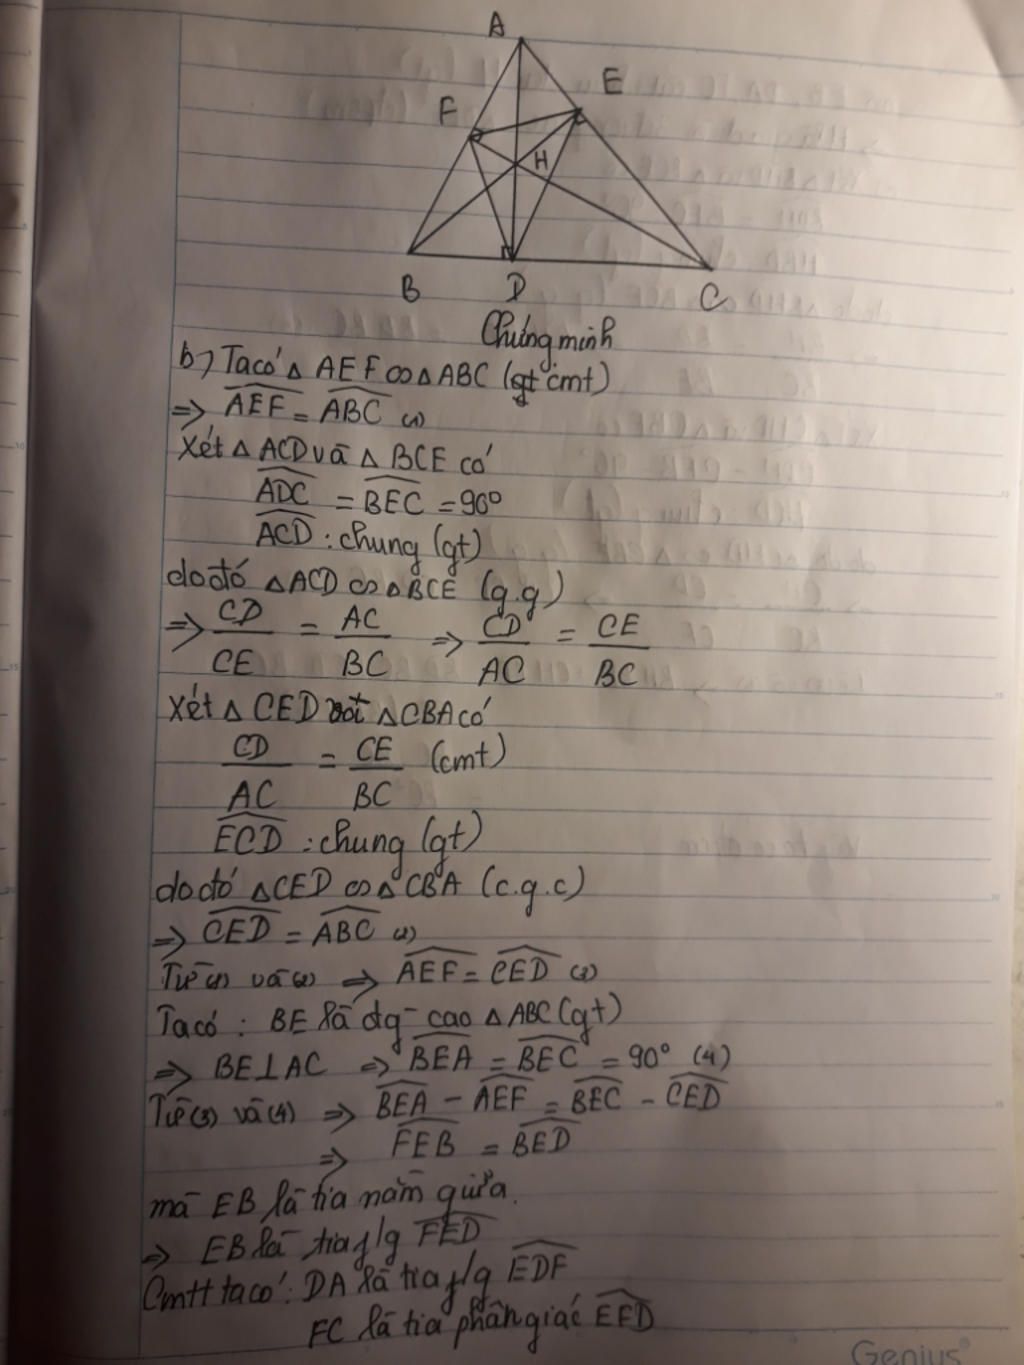 A
E
F
H
B
D
C
Chứng minh
b) Ta có Δ AEF ∽ Δ ABC (cmt)
=> AEF = ABC (1)
Xét Δ ACD và Δ BCE có
ADC = BEC = 90°
ACD : chung (gt)
do đó Δ ACD ∽ Δ BCE (g.g)
=> CD/CE = AC/BC => CD/AC = CE/BC
Xét Δ CED với Δ CBA có
CD/AC = CE/BC (cmt)
ECD : chung (gt)
do đó Δ CED ∽ Δ CBA (c.g.c)
=> CED = ABC (2)
Từ (1) và (2) => AEF = CED (3)
Ta có : BE là đg cao Δ ABC (gt)
=> BE ⊥ AC => BEA = BEC = 90° (4)
Từ (3) và (4) => BEA - AEF = BEC - CED
=> FEB = BED
mà EB là tia nằm giữa.
=> EB là tia f/g FED
Cmtt ta có : DA là tia f/g EDF
FC là tia phân giác EFD
Genius